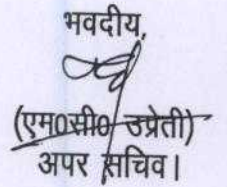 भवदीय,
(एम0सी0 उप्रेती)
अपर सचिव।